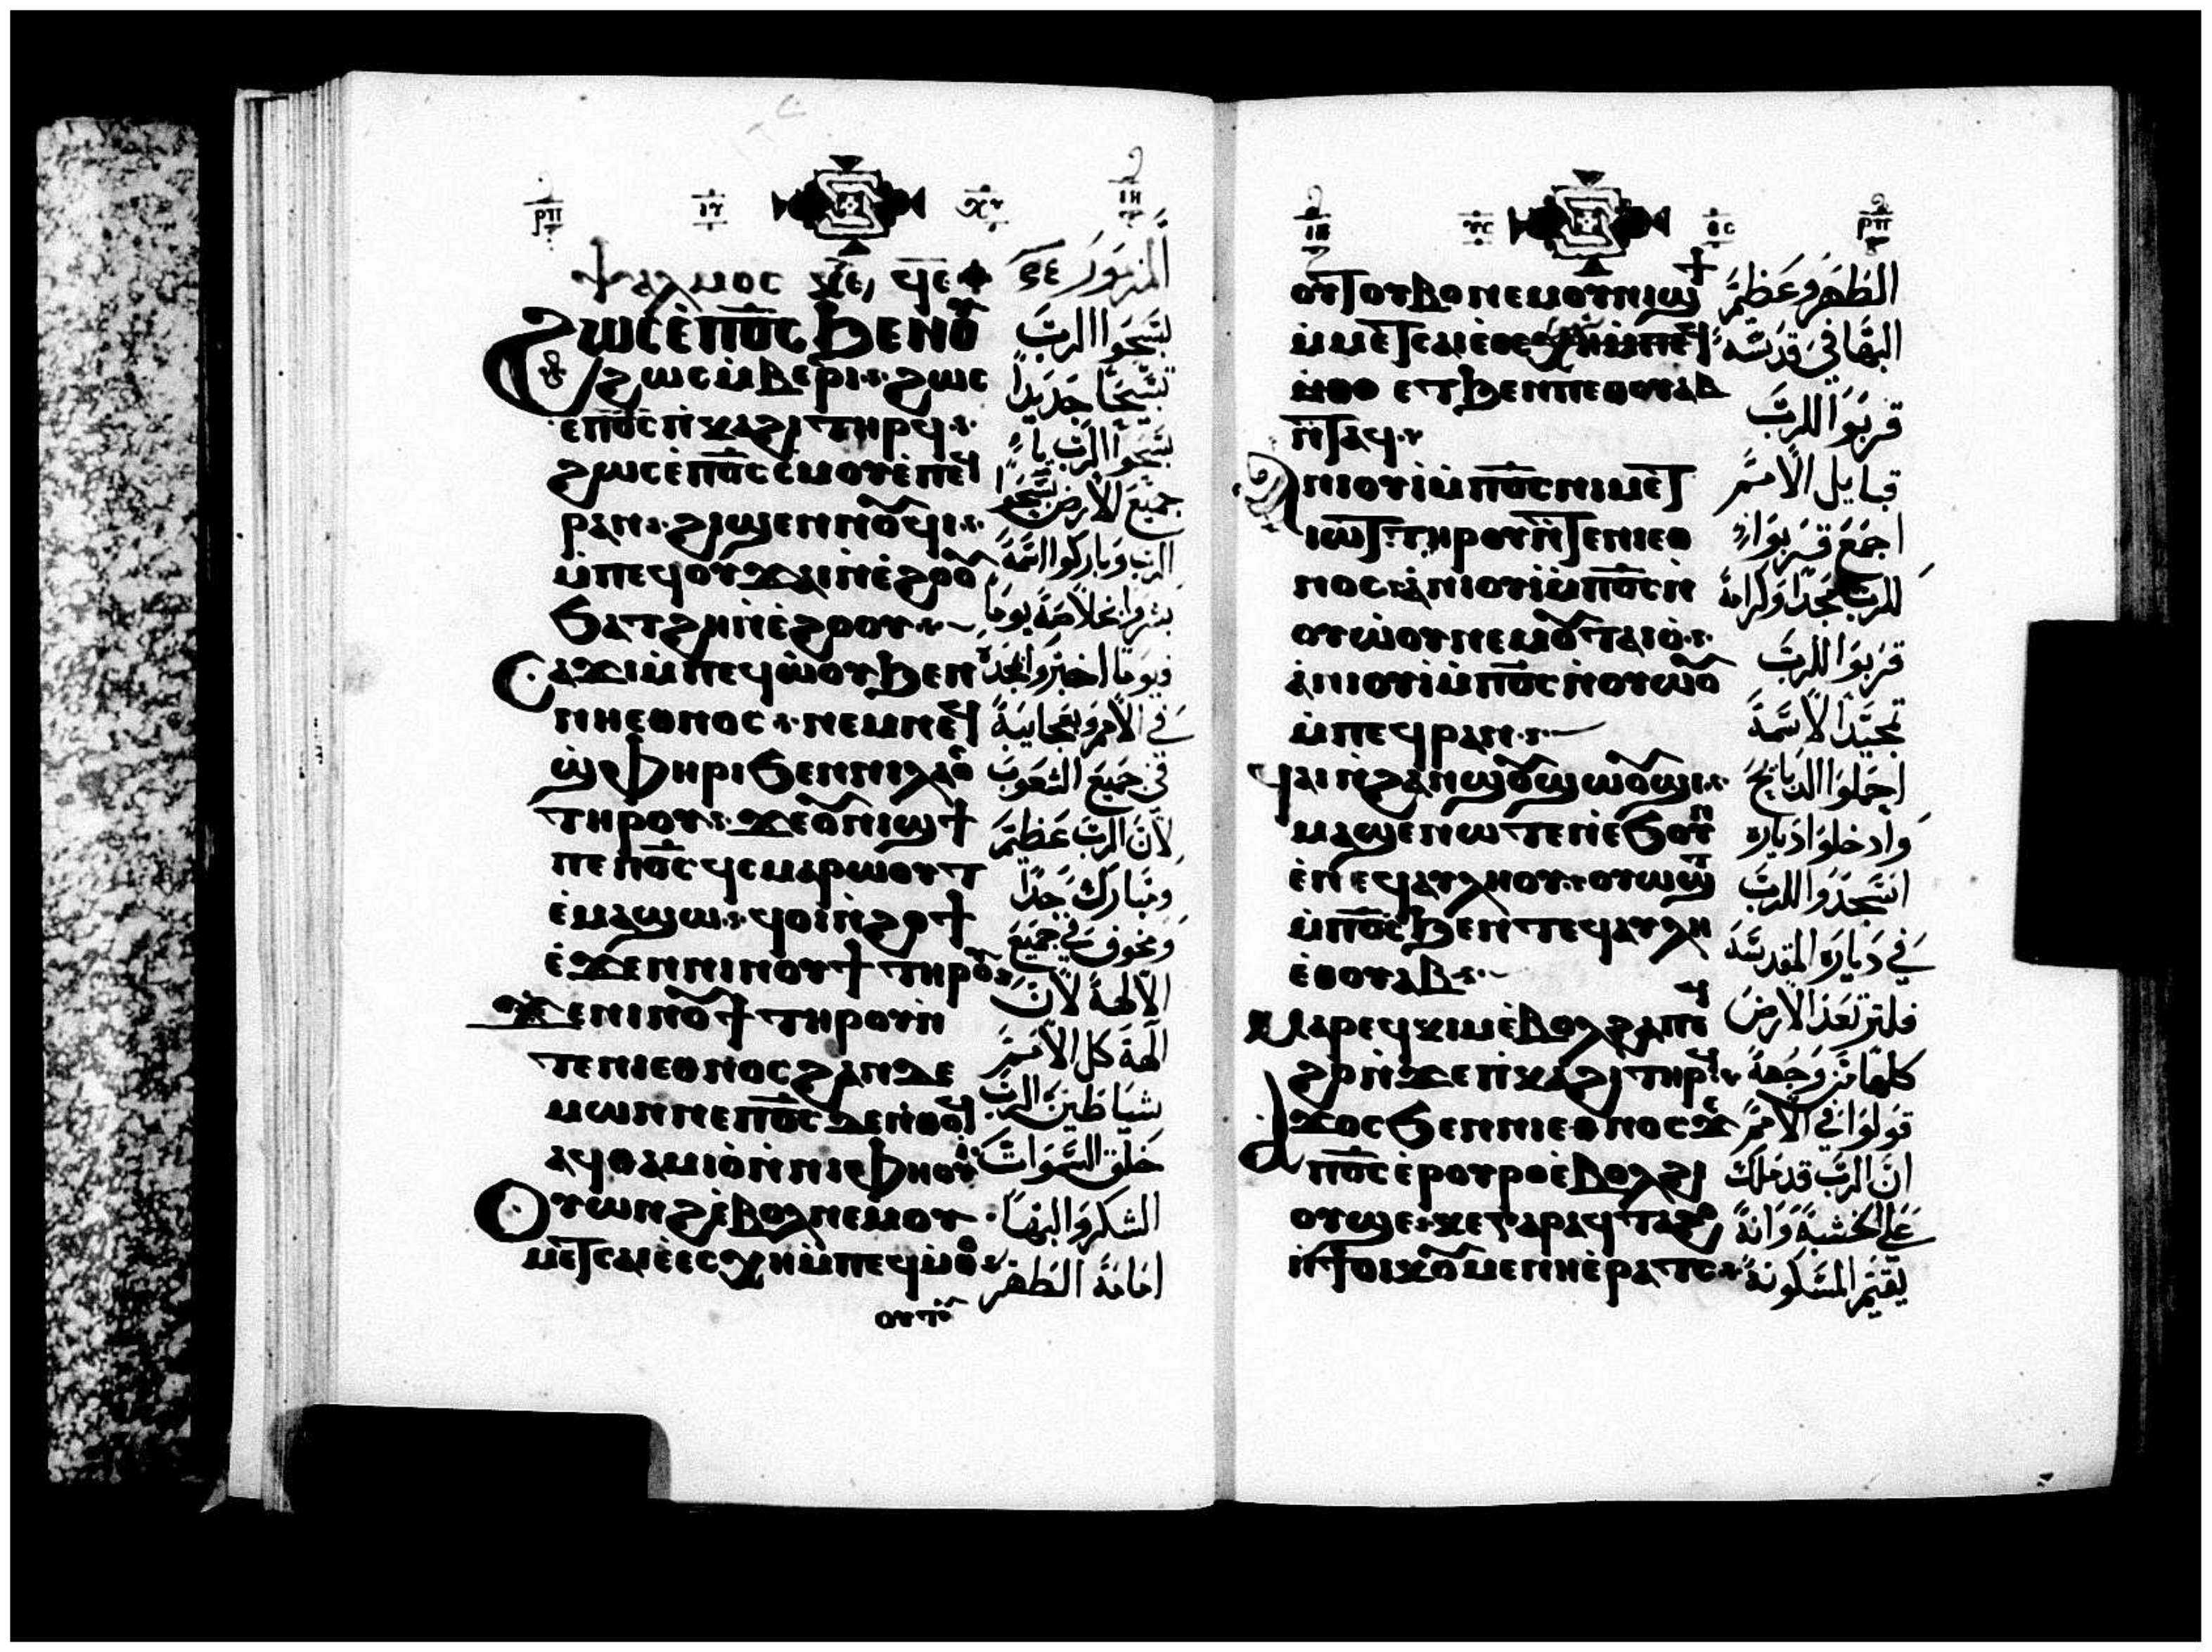 ⲯⲁⲗⲙⲟⲥ ϥⲉ
المزمور ٩٤
ϩⲱⲥ ⲉⲡⲟ̅ⲥ̅ ϧⲉⲛⲟⲩ
ϩⲱⲥ ⲙⲃⲉⲣⲓ ϩⲱⲥ
ⲉⲡⲟ̅ⲥ̅ ⲡⲕⲁϩⲓ ⲧⲏⲣϥ
ϩⲱⲥ ⲉⲡⲟ̅ⲥ̅ ⲥⲙⲟⲩ ⲉⲡⲉϥ
ⲣⲁⲛ ϩⲓϣⲉⲛⲛⲟⲩϥⲓ
ⲙⲡⲉϥⲟⲩϫⲁⲓ ⲛⲉϩⲟⲟⲩ
ϧⲁⲧϩⲏ ⲛⲉϩⲟⲟⲩ
ⲥⲁϫⲓ ⲙⲡⲉϥⲱⲟⲩ ϧⲉⲛ
ⲛⲓⲉⲑⲛⲟⲥ ⲛⲉⲙ ⲛⲉϥ
ϣⲫⲏⲣⲓ ϧⲉⲛ ⲛⲓⲗⲁⲟⲥ
ⲧⲏⲣⲟⲩ ϫⲉ ⲟⲩⲛⲓϣϯ
ⲡⲉ ⲡⲟ̅ⲥ̅ ϥⲥⲙⲁⲣⲱⲟⲩⲧ
ⲉⲙⲁϣⲱ ϥⲟⲓ ⲛϩⲟϯ
ⲉϫⲉⲛ ⲛⲓⲛⲟⲩϯ ⲧⲏⲣⲟⲩ
ϫⲉ ⲛⲓⲛⲟⲩϯ ⲧⲏⲣⲟⲩ ⲛ
ⲧⲉ ⲛⲓⲉⲑⲛⲟⲥ ϩⲁⲛⲇⲉ
ⲙⲱⲛ ⲛⲉ ⲡⲟ̅ⲥ̅ ⲇⲉ ⲛⲑⲟϥ
ⲁϥⲑⲁⲙⲓⲟ ⲛⲛⲓⲫⲏⲟⲩⲓ
ⲟⲩⲱⲛϩ ⲉⲃⲟⲗ ⲛⲉⲙ ⲟⲩ
ⲙⲉⲧⲥⲁⲓⲉ ⲉⲥⲭⲏ ⲙⲡⲉϥⲙⲑⲟ
سبحوا الرب
تسبيحًا جديدًا
سبحوا الرب يا
جميع الأرض سبحوا
الرب وباركوا اسمه
بشروا بخلاصه يوما
فيوما اخبروا بمجده
في الأمم وبعجايبه
في جميع الشعوب
لأن الرب عظيم
ومبارك جدًا
ومخوف في جميع
الآلهة لأن
آلهة كل الأمم
شياطين الرب
خلق السموات
الشكر والبها
امامه الطهر
ⲟⲩⲧⲟⲩ
ⲟⲩⲧⲟⲩⲃⲟ ⲛⲉⲙ ⲟⲩⲛⲓϣϯ
ⲙⲙⲉⲧⲥⲁⲓⲉ
ⲉⲧϧⲉⲛ ⲡⲉⲑⲟⲩⲁⲃ
ⲛⲧⲁϥ
ⲁⲛⲓⲟⲩⲓ ⲙⲡⲟ̅ⲥ̅ ⲛⲓⲙⲉⲧ
ⲓⲱⲧ ⲧⲏⲣⲟⲩ ⲛⲧⲉ ⲛⲓⲉⲑ
ⲛⲟⲥ ⲁⲛⲓⲟⲩⲓ ⲙⲡⲟ̅ⲥ̅ ⲛ
ⲟⲩⲱⲟⲩ ⲛⲉⲙ ⲟⲩⲧⲁⲓⲟ
ⲁⲛⲓⲟⲩⲓ ⲙⲡⲟ̅ⲥ̅ ⲛⲟⲩⲱⲟⲩ
ⲙⲡⲉϥⲣⲁⲛ
ϥⲁⲓ ⲛϩⲁⲛϣⲟⲩϣⲱⲟⲩϣⲓ
ⲙⲁϣⲉⲛⲱⲧⲉⲛ ⲉϧⲟⲩⲛ
ⲉⲛⲉϥⲁⲩⲗⲏⲟⲩ ⲟⲩⲱϣⲧ
ⲙⲡⲟ̅ⲥ̅ ϧⲉⲛ ⲧⲉϥⲁⲩⲗⲏ
ⲉⲑⲟⲩⲁⲃ
ⲙⲁⲣⲉϥⲕⲓⲙ ⲉⲃⲟⲗ ϩⲁ ⲡⲉϥ
ϩⲟ ⲛϫⲉ ⲡⲕⲁϩⲓ ⲧⲏⲣϥ
ⲁϫⲟⲥ ϧⲉⲛ ⲛⲓⲉⲑⲛⲟⲥ ϫⲉ
ⲡⲟ̅ⲥ̅ ⲉⲣⲟⲩⲣⲟ ⲉⲃⲟⲗ ϩⲓ
ⲟⲩϣⲉ ⲕⲉ ⲅⲁⲣ ⲁϥⲧⲁϩⲟ
ⲛϯⲟⲓⲕⲟⲩⲙⲉⲛⲏ ⲉⲣⲁⲧⲥ
الطهر وعظم
البها في قدسه
قربوا للرب
قبايل الأمم
اجمع قربوا
للرب مجدًا وكرامة
قربوا للرب
تمجيدًا لاسمه
احملوا الذبايح
وادخلوا دياره
اسجدوا للرب
في دياره المقدسة
فلترتعد الأرض
كلها من وجهه
قولوا في الأمم
ان الرب قد ملك
على الخشبة وانه
يقيم المسكونة